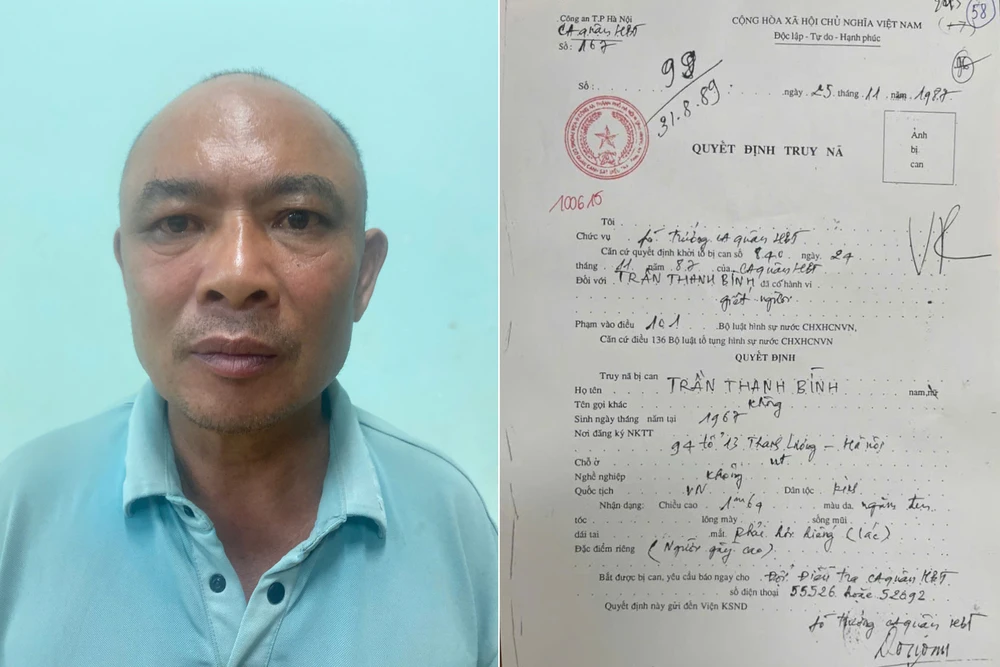 Công an T.P Hà Nội
CA quận HBT
Số : 167
58
CỘNG HÒA XÃ HỘI CHỦ NGHĨA VIỆT NAM
Độc lập - Tự do - Hạnh phúc
Số :
98
31.8.89
ngày 25 tháng 11 năm 1987
QUYẾT ĐỊNH TRUY NÃ
Ảnh
bị
can
100615
VK
Tôi
Chức vụ fó trưởng CA quận HBT
Căn cứ quyết định khởi tố bị can số 840 ngày 24
tháng 11 năm 87 của CA quận HBT
Đối với TRẦN THANH BÍNH đã có hành vi
giết người
Phạm vào điều 101 Bộ luật hình sự nước CHXHCNVN,
Căn cứ điều 136 Bộ luật tố tụng hình sự nước CHXHCNVN
QUYẾT ĐỊNH
Truy nã bị can
Họ tên TRẦN THANH BÍNH nam, nữ
Tên gọi khác không
Sinh ngày tháng năm tại 1967
Nơi đăng ký NKTT
94 tổ 13 Thanh Lương - Hà nội
Chỗ ở nt
Nghề nghiệp không
Quốc tịch VN Dân tộc kinh
Nhận dạng: Chiều cao 1m69 màu da ngăm đen
tóc lông mày sống mũi
dái tai mắt phải hơi hiếng (lác)
Đặc điểm riêng (Người gầy cao)
Bắt được bị can, yêu cầu báo ngay cho Đội Điều tra CA quận HBT
số điện thoại 55526 hoặc 52692
Quyết định này gửi đến Viện KSND
fó trưởng CA quận HBT